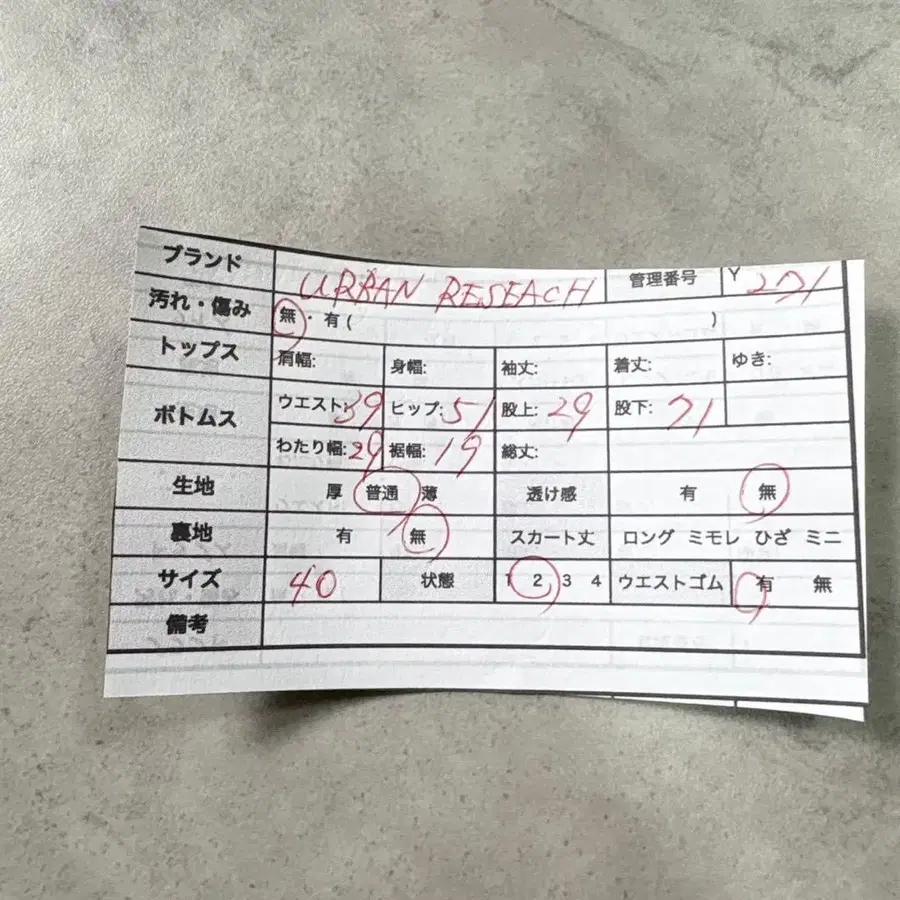 ブランド URBAN RESEACH 管理番号 Y 271
汚れ・傷み 無・有 ( )
トップス 肩幅: 身幅: 袖丈: 着丈: ゆき:
ボトムス ウエスト: 39 ヒップ: 51 股上: 29 股下: 71
わたり幅: 29 裾幅: 19 総丈:
生地 厚 普通 薄 透け感 有 無
裏地 有 無 スカート丈 ロング ミモレ ひざ ミニ
サイズ 40 状態 1 2 3 4 ウエストゴム 有 無
備考